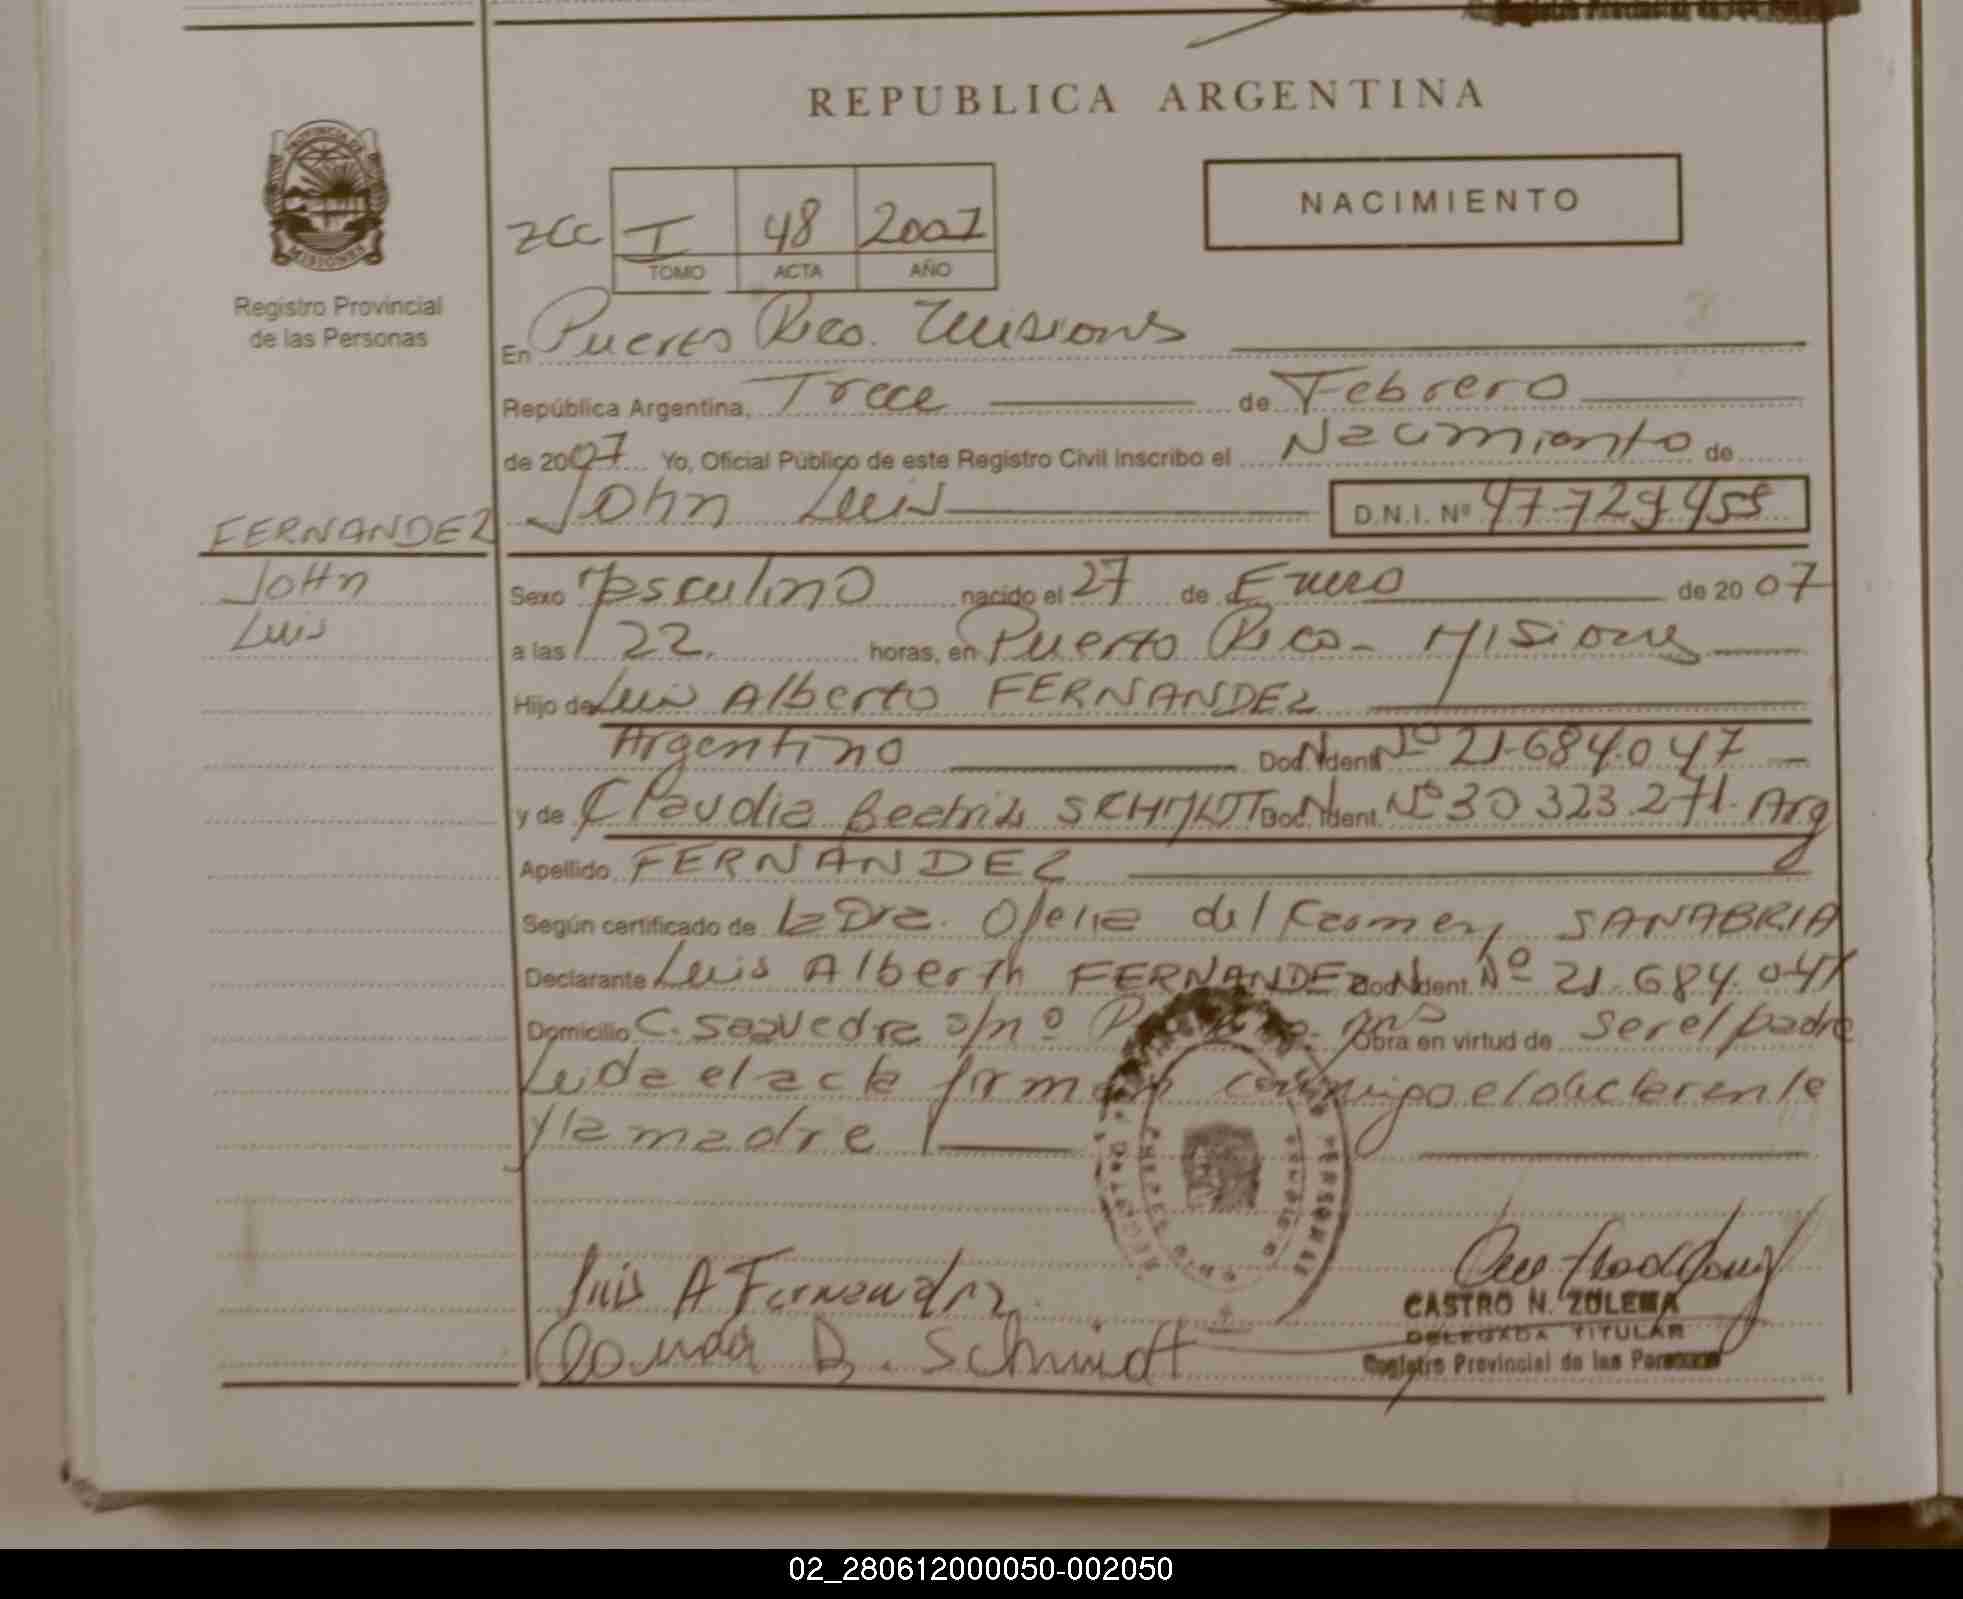 REPUBLICA ARGENTINA
PROVINCIA DE
MISIONES
Registro Provincial
de las Personas
NACIMIENTO
I 48 2007
TOMO ACTA AÑO
En Puerto Rico. Misiones
República Argentina, Trece de Febrero
de 2007 Yo, Oficial Público de este Registro Civil Inscribo el Nacimiento de
FERNANDEZ
John Luis D.N.I. Nº 47.729.455
John
Luis
Sexo Masculino nacido el 27 de Enero de 2007
a las 22. horas, en Puerto Rico - Misiones
Hijo de Luis Alberto FERNANDEZ
Argentino Doc. Ident. Nº 21.684.047
y de Claudia Beatriz SCHMIDT Doc. Ident. Nº 30.323.271. Arg
Apellido FERNANDEZ
Según certificado de la Dra. Ofelia del Carmen SANABRIA
Declarante Luis Alberto FERNANDEZ Doc. Ident. Nº 21.684.047
Domicilio C. Saavedra s/nº Obra en virtud de ser el padre
Leida el acta firman conmigo el declarante
y la madre
Luis A Fernandez
Claudia B. Schmidt
CASTRO N. ZULEMA
DELEGADA TITULAR
Registro Provincial de las Personas
02_280612000050-002050